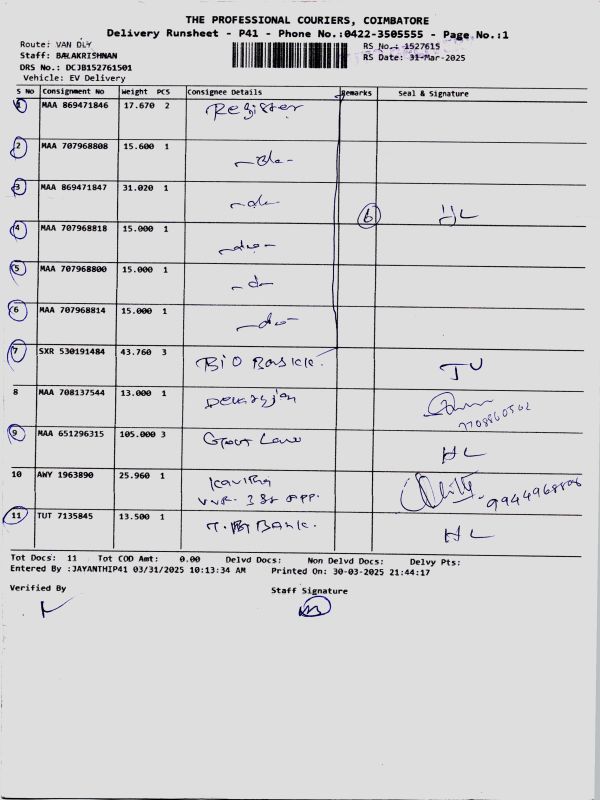 THE PROFESSIONAL COURIERS, COIMBATORE
Delivery Runsheet - P41 - Phone No.:0422-3505555 - Page No.:1
Route: VAN DLY
RS No.: 1527615
Staff: BALAKRISHNAN
RS Date: 31-Mar-2025
DRS No.: DCJB152761501
Vehicle: EV Delivery
S No Consignment No Weight PCS Consignee Details Remarks Seal & Signature
1 MAA 869471846 17.670 2 Register
2 MAA 707968808 15.600 1 -do-
3 MAA 869471847 31.020 1 -do-
6
4 MAA 707968818 15.000 1 -do-
5 MAA 707968800 15.000 1 -do-
6 MAA 707968814 15.000 1 -do-
7 SXR 530191484 43.760 3 BIO
8 MAA 708137544 13.000 1
7708860502
9 MAA 651296315 105.000 3 HL
10 AWY 1963890 25.960 1 Kavitha
9944968808
11 TUT 7135845 13.500 1 BANK. HL
Tot Docs: 11 Tot COD Amt: 0.00 Delvd Docs: Non Delvd Docs: Delvy Pts:
Entered By :JAYANTHIP41 03/31/2025 10:13:34 AM Printed On: 30-03-2025 21:44:17
Verified By Staff Signature